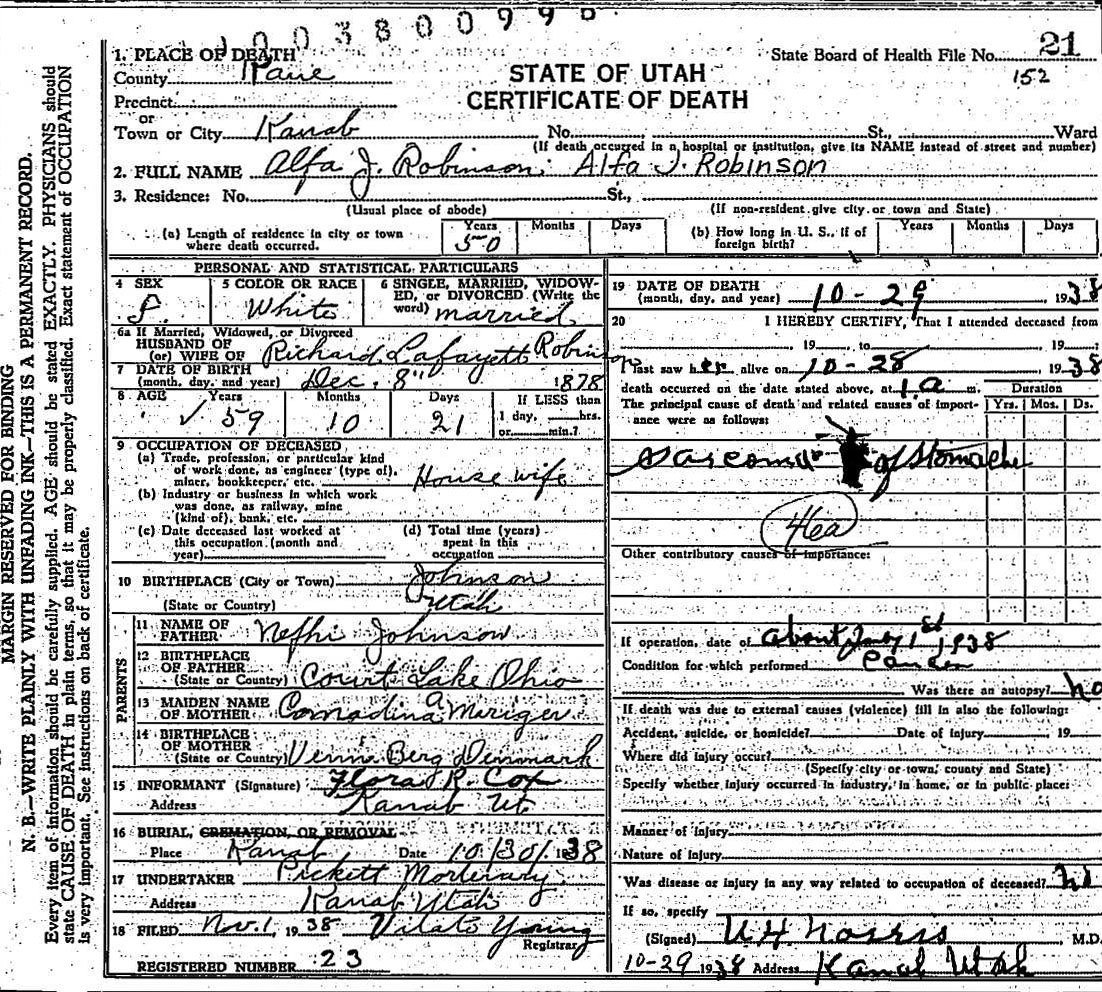 10038009 9 8
1. PLACE OF DEATH
County Kane
Precinct
or
Town or City Kanab
STATE OF UTAH
CERTIFICATE OF DEATH
State Board of Health File No. 21
152
No. St., Ward
(If death occurred in a hospital or institution, give its NAME instead of street and number)
2. FULL NAME Alfa J. Robinson. Alfa J. Robinson
3. Residence: No. St.,
(Usual place of abode) (If non-resident give city or town and State)
(a) Length of residence in city or town where death occurred. Years 50 Months Days
(b) How long in U. S., if of foreign birth? Years Months Days
PERSONAL AND STATISTICAL PARTICULARS
4 SEX F.
5 COLOR OR RACE White
6 SINGLE, MARRIED, WIDOWED, or DIVORCED (Write the word) married
6a If Married, Widowed, or Divorced
HUSBAND OF
(or) WIFE OF Richard Lafayett Robinson
7 DATE OF BIRTH
(month, day, and year) Dec. 8" 1878
8 AGE Years Months Days If LESS than
✓ 59 10 21 1 day, hrs.
or min.?
9 OCCUPATION OF DECEASED
(a) Trade, profession, or particular kind
of work done, as engineer (type of),
miner, bookkeeper, etc. House wife
(b) Industry or business in which work
was done, as railway, mine
(kind of), bank, etc.
(c) Date deceased last worked at
this occupation (month and
year)
(d) Total time (years)
spent in this
occupation
10 BIRTHPLACE (City or Town) Johnson
(State or Country) Utah
PARENTS
11 NAME OF
FATHER Nephi Johnson
12 BIRTHPLACE
OF FATHER
(State or Country) Court Lake Ohio
13 MAIDEN NAME
OF MOTHER Conradina a Meriger
14 BIRTHPLACE
OF MOTHER
(State or Country) Venne Berg Denmark
15 INFORMANT (Signature) Flora R. Cox
Address Kanab Ut
16 BURIAL, CREMATION, OR REMOVAL
Place Kanab Date 10/30/1938
17 UNDERTAKER Pickett Mortuary
Address Kanab Utah
18 FILED Nov. 1, 1938 Vilate Young
Registrar
REGISTERED NUMBER 23
19 DATE OF DEATH
(month, day, and year) 10-29 1938
20 I HEREBY CERTIFY, That I attended deceased from
19 , to 19 ;
I last saw her alive on 10-28 1938
death occurred on the date stated above, at 1 a m.
The principal cause of death and related causes of importance were as follows:
Duration
Yrs. Mos. Ds.
Sarcoma of Stomache
46a
Other contributory causes of importance:
If operation, date of about Jany 1st 1938
Condition for which performed Cancer
Was there an autopsy? no
If death was due to external causes (violence) fill in also the following:
Accident, suicide, or homicide? Date of injury 19
Where did injury occur?
(Specify city or town, county and State)
Specify whether injury occurred in industry, in home, or in public place:
Manner of injury
Nature of injury
Was disease or injury in any way related to occupation of deceased? no
If so, specify
(Signed) U H Norris M.D.
10-29 1938 Address Kanab Utah
MARGIN RESERVED FOR BINDING
N. B.—WRITE PLAINLY WITH UNFADING INK—THIS IS A PERMANENT RECORD.
Every item of information should be carefully supplied. AGE should be stated EXACTLY. PHYSICIANS should
state CAUSE OF DEATH in plain terms, so that it may be properly classified. Exact statement of OCCUPATION
is very important. See instructions on back of certificate.